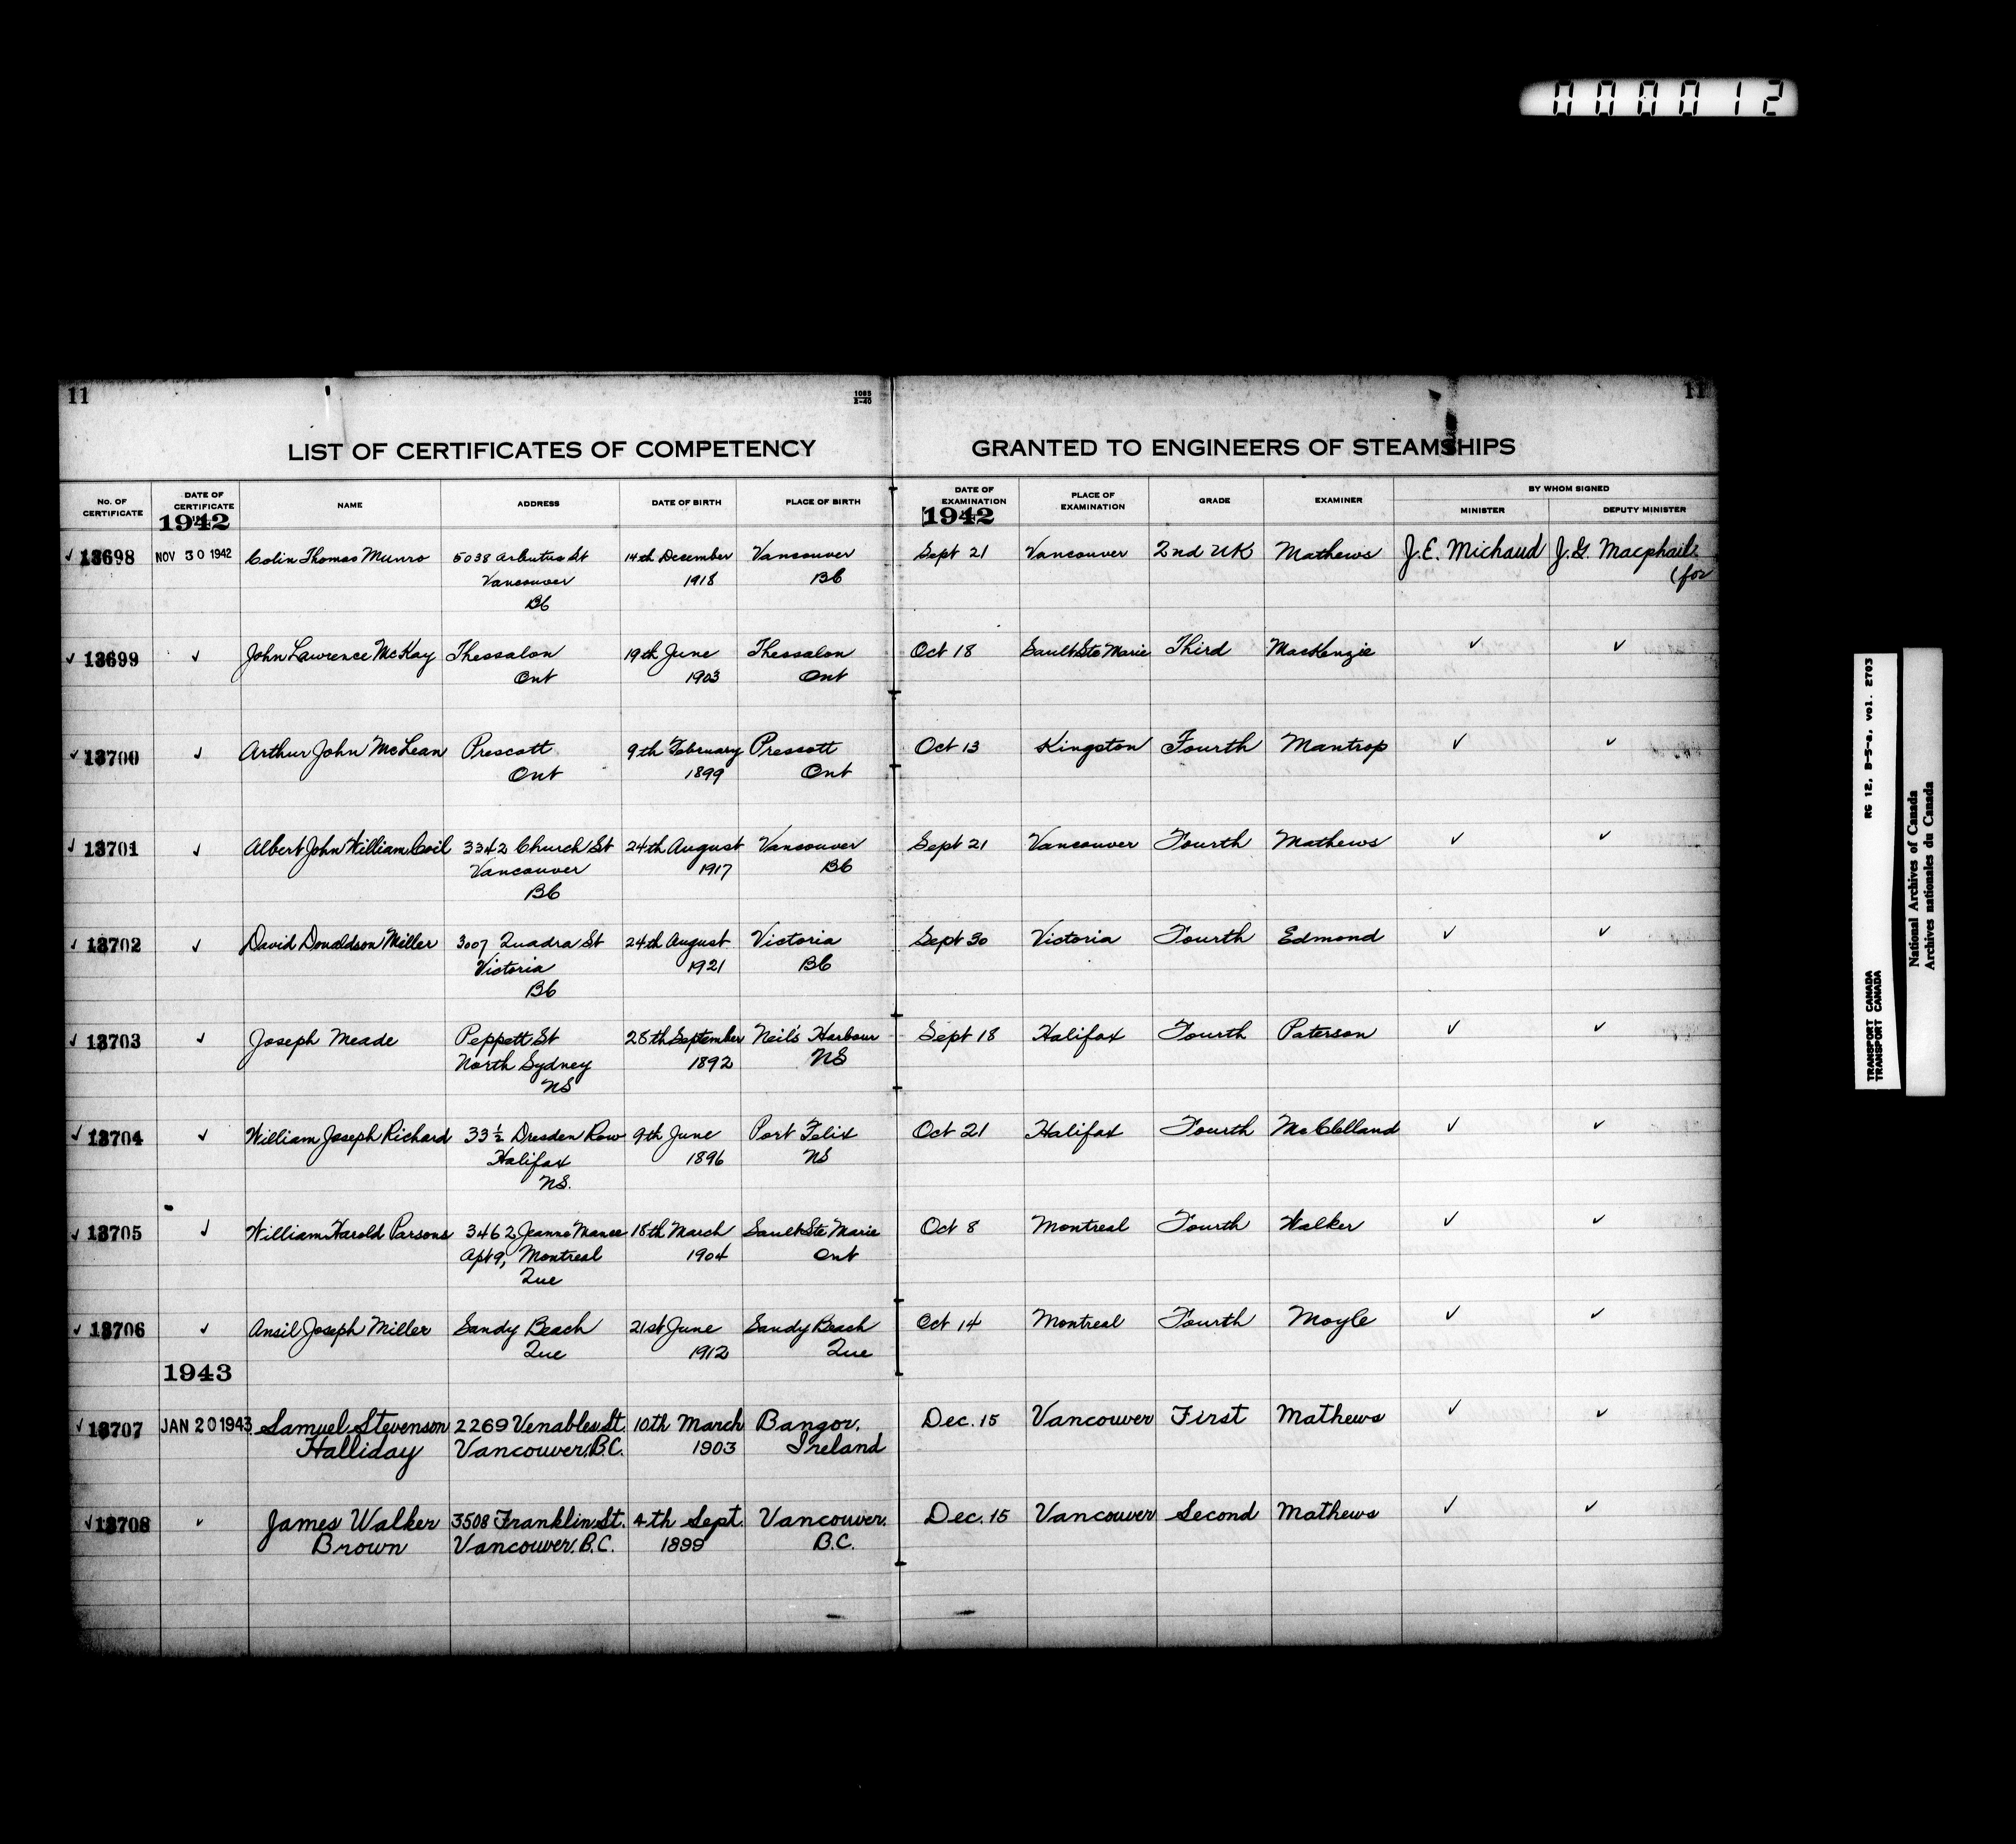 000012
11
1085
2-40
11
LIST OF CERTIFICATES OF COMPETENCY GRANTED TO ENGINEERS OF STEAMSHIPS
No. OF CERTIFICATE DATE OF CERTIFICATE NAME ADDRESS DATE OF BIRTH PLACE OF BIRTH DATE OF EXAMINATION PLACE OF EXAMINATION GRADE EXAMINER BY WHOM SIGNED
MINISTER DEPUTY MINISTER
1942 1942
✓ 13698 NOV 30 1942 Colin Thomas Munro 5038 Arbutus St 14th December Vancouver Sept 21 Vancouver 2nd UK Mathews J.E. Michaud J.G. Macphail
Vancouver 1918 BC (for
BC
✓ 13699 ✓ John Lawrence McKay Thessalon 19th June Thessalon Oct 18 Sault Ste Marie Third MacKenzie ✓ ✓
Ont 1903 Ont
✓ 13700 ✓ Arthur John McLean Prescott 9th February Prescott Oct 13 Kingston Fourth Mantrop ✓ ✓
Ont 1899 Ont
✓ 13701 ✓ Albert John William Coil 3342 Church St 24th August Vancouver Sept 21 Vancouver Fourth Mathews ✓ ✓
Vancouver 1917 BC
BC
✓ 13702 ✓ David Donaldson Miller 3007 Quadra St 24th August Victoria Sept 30 Victoria Fourth Edmond ✓ ✓
Victoria 1921 BC
BC
✓ 13703 ✓ Joseph Meade Peppett St 28th September Neil's Harbour Sept 18 Halifax Fourth Paterson ✓ ✓
North Sydney 1892 NS
NS
✓ 13704 ✓ William Joseph Richard 33 ½ Dresden Row 9th June Port Felix Oct 21 Halifax Fourth McClelland ✓ ✓
Halifax 1896 NS
NS.
✓ 13705 ✓ William Harold Parsons 3462 Jeanne Mance 18th March Sault Ste Marie Oct 8 Montreal Fourth Walker ✓ ✓
Apt 9, Montreal 1904 Ont
Que
✓ 13706 ✓ Ansil Joseph Miller Sandy Beach 21st June Sandy Beach Oct 14 Montreal Fourth Moyle ✓ ✓
Que 1912 Que
1943
✓ 13707 JAN 20 1943 Samuel Stevenson 2269 Venables St. 10th March Bangor, Dec. 15 Vancouver First Mathews ✓ ✓
Halliday Vancouver, B.C. 1903 Ireland
✓ 13708 ✓ James Walker 3508 Franklin St. 4th Sept. Vancouver. Dec. 15 Vancouver Second Mathews ✓ ✓
Brown Vancouver, B.C. 1899 B.C.
TRANSPORT CANADA RG 12, B-5-a, vol. 2703
TRANSPORT CANADA
National Archives of Canada
Archives nationales du Canada